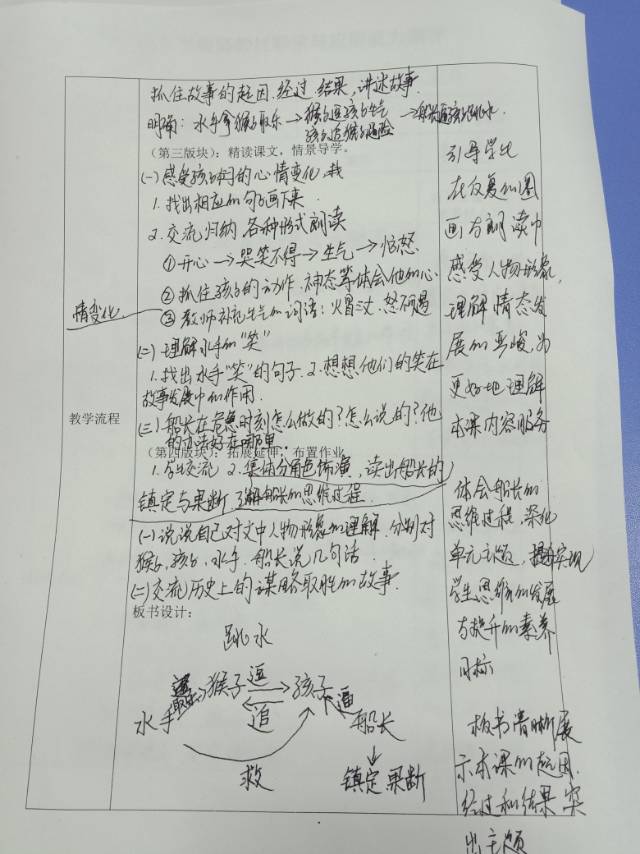 抓住故事的起因.经过.结果,讲述故事.
明确:水手拿猴子取乐→猴子逗孩子生气 孩子追猴子遇险→船长逼孩子跳水
(第三版块):精读课文,情景导学。
(一)感受孩子的心情变化,我
1.找出相应的句子画下来.
2.交流归纳 各种形式朗读
①开心→哭笑不得→生气→愤怒
②抓住孩子的动作.神态等体会他的心
情变化
③教师补充生气的词语:火冒三丈.怒不可遏
(二)理解水手的“笑”
1.找出水手“笑”的句子.2.想想他们的笑在
故事发展中的作用.
教学流程
(三)船长在危急时刻怎么做的?怎么说的?他
的办法好在哪里.
(第四版块):拓展延伸,布置作业
1.学生交流 2.集体分角色饰演,读出船长的
镇定与果断.了解船长的思维过程.
(一)说说自己对文中人物形象的理解.分别对
猴子,孩子,水手.船长说几句话.
(二)交流历史上的谋略取胜的故事.
板书设计:
跳水
猴子 逗 孩子
水手 追 逼 船长
救 镇定 果断
引导学生
在反复的圈
画与朗读中
感受人物形象,
理解情态发
展的
更好地理解
本课内容服务
体会船长的
思维过程,深化
单元主题,实现
学生思维的发展
与提升的素养
目标
板书清晰展
示本课的起因.
经过和结果 突
出主题